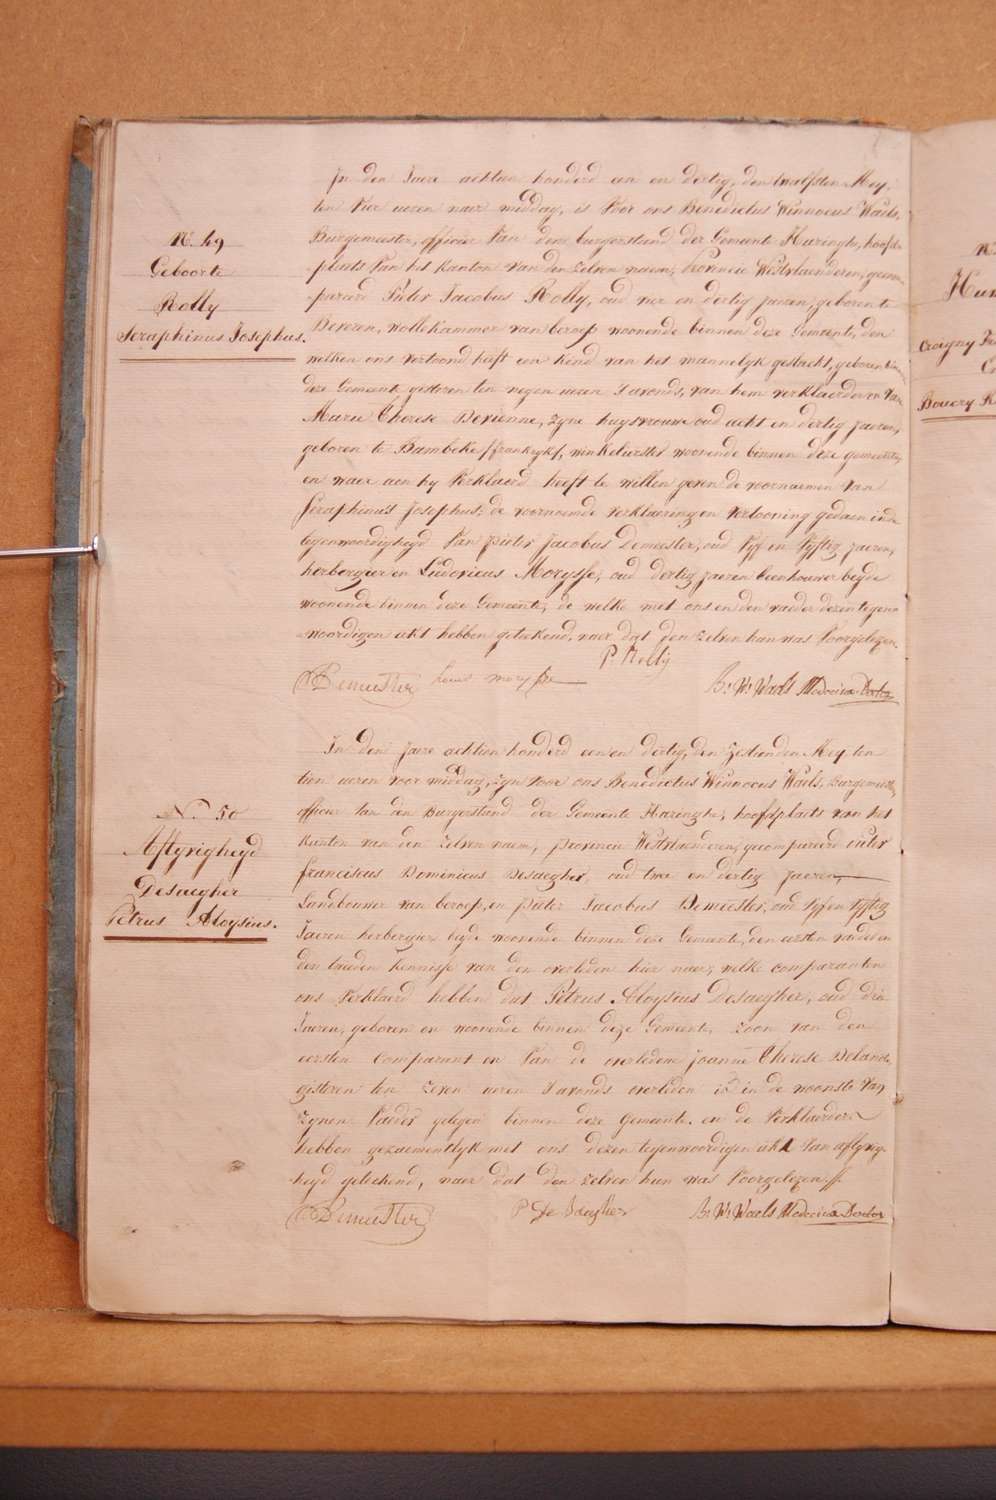 N. 49
Geboorte
Rolly
Seraphinus Josephus.
In den Jaere achtien honderd een en dertig, den twalfsten Mey,
ten vier ueren naer middag, is voor ons Benedictus Winnocus Waels,
Burgemeester, officier van den burgerstand der Gemeente Haringhe, hoofd-
plaets van het kanton van den zelven naem, provincie Westvlaenderen, gecom-
pareerd Pieter Jacobus Rolly, oud vier en dertig jaeren, geboren te
Beveren, wollekammer van beroep woonende binnen deze Gemeente, den
welken ons vertoond heeft een kind van het mannelyk geslacht, geboren binnen
deze Gemeente gisteren ten negen ueren 's avonds, van hem verklaerder en van
Marie Therese Devienne, zyne huysvrouwe oud acht en dertig jaeren,
geboren te Bambeke /frankryk/, winkelierster woonende binnen deze gemeente,
en waer aen hy verklaerd heeft te willen geven de voornaemen van
Seraphinus Josephus: de voornoemde verklaering en vertooning gedaen in de
tegenwoordigheyd van pieter Jacobus Demeester, oud vyf en vyftig jaeren,
herbergier en Ludovicus Morysse, oud dertig jaeren beenhouwer beyde
woonende binnen deze Gemeente, de welke met ons en den vader dezen tegen-
woordigen akt hebben geteekend, naer dat den zelven hun was voorgelezen.
P. Rolly
Demeester Louis morysse B. W. Waels Medecinæ Doctor
N. 50
Aflyvigheyd
Desaegher
Petrus Aloysius.
In den jaere achtien honderd een en dertig, den zestienden Mey ten
tien ueren voor middag, zyn voor ons Benedictus Winnocus Waels, burgemeester
officier van den Burgerstand der Gemeente Haringhe, hoofdplaets van het
kanton van den zelven naem, provincie Westvlaenderen, gecompareerd pieter
franciscus Dominicus Desaegher, oud twee en dertig jaeren,
Landbouwer van beroep, en pieter Jacobus Demeester, oud vyf en vyftig
Jaeren herbergier beyde woonende binnen deze Gemeente, den eersten vader en
den tweeden kennisse van den overleden hier naer, welke comparanten
ons verklaerd hebben dat Petrus Aloysius Desaegher, oud drie
Jaeren, geboren en woonende binnen deze Gemeente, zoon van den
eersten comparant en van de overledene Joanne Therese
gisteren ten zeven ueren 's avonds overleden is in de woonste van
zynen vader gelegen binnen deze Gemeente. en de verklaerders
hebben gezaementlyk met ons dezen tegenwoordigen akt van aflyvig-
heyd geteekend, naer dat den zelven hun was voorgelezen.
Demeester P De Saegher B. W. Waels Medecinæ Doctor